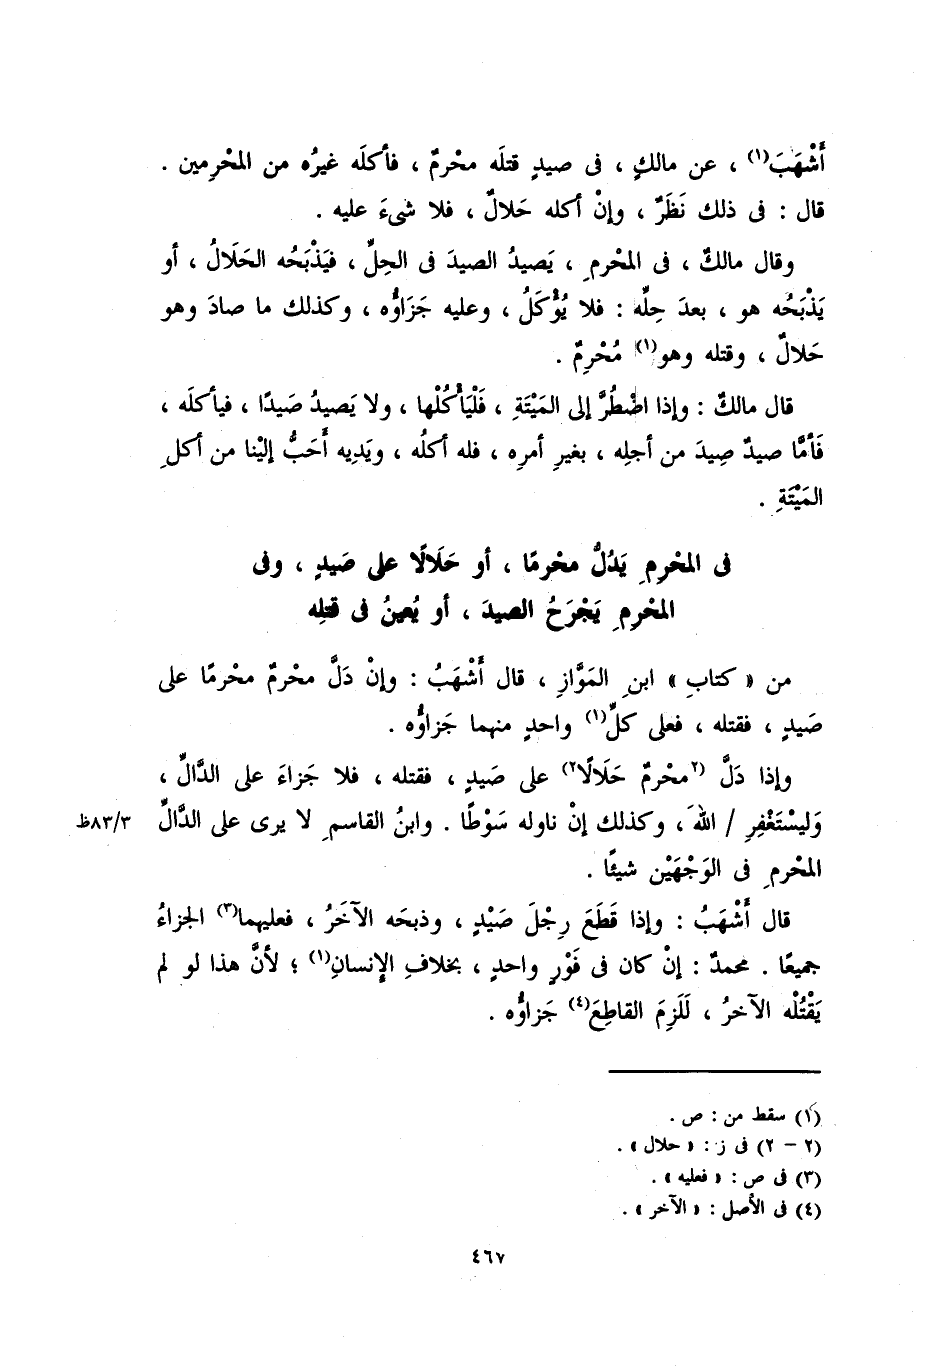 أَشْهَبَ(١) ، عن مالكٍ ، فى صيدٍ قتلَه محْرمٌ ، فأكلَه غيرُه من المحْرِمين .
قال : فى ذلك نَظَرٌ ، وإنْ أكله حَلالٌ ، فلا شىءَ عليه .
وقال مالكٌ ، فى المحْرمِ ، يَصيدُ الصيدَ فى الحِلِّ ، فيَذْبَحُه الحَلَالُ ، أو
يَذْبَحُه هو ، بعدَ حِلِّه : فلا يُؤْكَلُ ، وعليه جَزَاؤُه ، وكذلك ما صادَ وهو
حَلالٌ ، وقتله وهو(١) مُحْرِمٌ .
قال مالكٌ : وإذا اضْطُرَّ إلى المَيْتَةِ ، فَلْيَأْكُلْها ، ولا يَصيدُ صَيدًا ، فيأكلَه ،
فَأمَّا صيدٌ صِيدَ من أجلِه ، بغيرِ أمرِه ، فله أكلُه ، ويَدِيه أَحَبُّ إليْنا من أكلِ
المَيْتَةِ .
فى المحْرِمِ يَدُلُّ محْرمًا ، أو حَلَالًا على صَيدٍ ، وفى
المحْرِمِ يَجْرَحُ الصيدَ ، أو يُعينُ فى قتلِه
من « كتابِ » ابنِ المَوَّازِ ، قال أَشْهَبُ : وإنْ دَلَّ محْرمٌ محْرمًا على
صَيدٍ ، فقتله ، فعلى كلِّ(١) واحدٍ منهما جَزاؤُه .
وإذا دَلَّ (٢محْرمٌ حَلَالًا٢) على صَيدٍ ، فقتله ، فلا جَزاءَ على الدَّالِّ ،
وَليسْتَغْفِرِ / اللهَ ، وكذلك إنْ ناوله سَوْطًا . وابنُ القاسمِ لا يرى على الدَّالِّ
٨٣/٣ظ
المحْرمِ فى الوَجْهَيْن شيئًا .
قال أَشْهَبُ : وإذا قَطَعَ رِجْلَ صَيْدٍ ، وذبحَه الآخَرُ ، فعليهما(٣) الجزاءُ
جميعًا . محمدٌ : إنْ كان فى فَوْرٍ واحدٍ ، بخلافِ الإنسانِ(١) ؛ لأنَّ هذا لو لم
يَقْتُلْه الآخرُ ، لَلَزِمَ القاطِعَ(٤) جَزاؤُه .
(١) سقط من : ص .
(٢ – ٢) فى ز : « حلال » .
(٣) فى ص : « فعليه » .
(٤) فى الأصل : « الآخر » .
٤٦٧